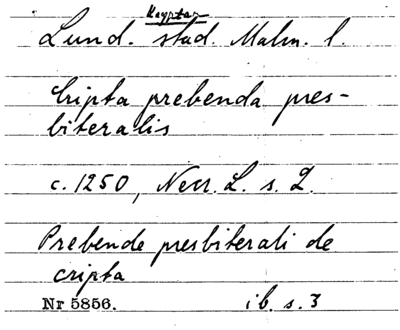 Kryptan
Lund. stad. Malm. l.
Cripta prebenda pres-
biteralis
c. 1250, Necr. L. s. 2.
Prebende presbiterali de
cripta
Nr 5856. ib. s. 3